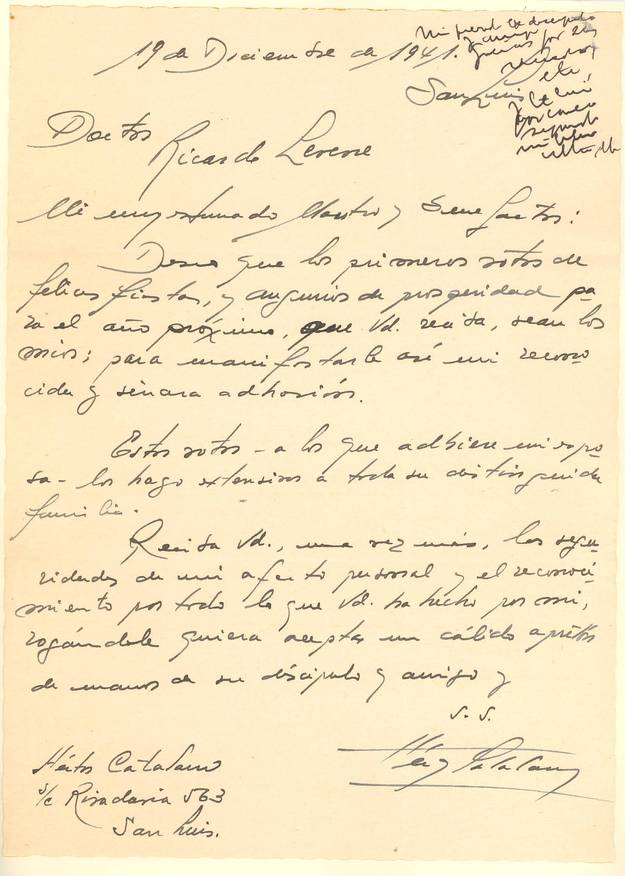 19 de Diciembre de 1941.
San Luis
Doctor
Ricardo Levene
Mi muy estimado Maestro y Benefactor:
Deseo que los primeros votos de
felices fiestas, y augurios de prosperidad pa-
ra el año próximo, que Vd. reciba, sean los
míos; para manifestarle así mi recono-
cida y sincera adhesión.
Estos votos - a los que adhiere mi espo-
sa - los hago extensivos a toda su distinguida
familia.
Reciba Vd., una vez más, las segu-
ridades de mi afecto personal y el reconoci-
miento por todo lo que Vd. ha hecho por mí,
rogándole quiera aceptar un cálido apretón
de manos de su discípulo y amigo y
S. S.
Héctor Catalano
Héctor Catalano
s/c Rivadavia 563
San Luis.